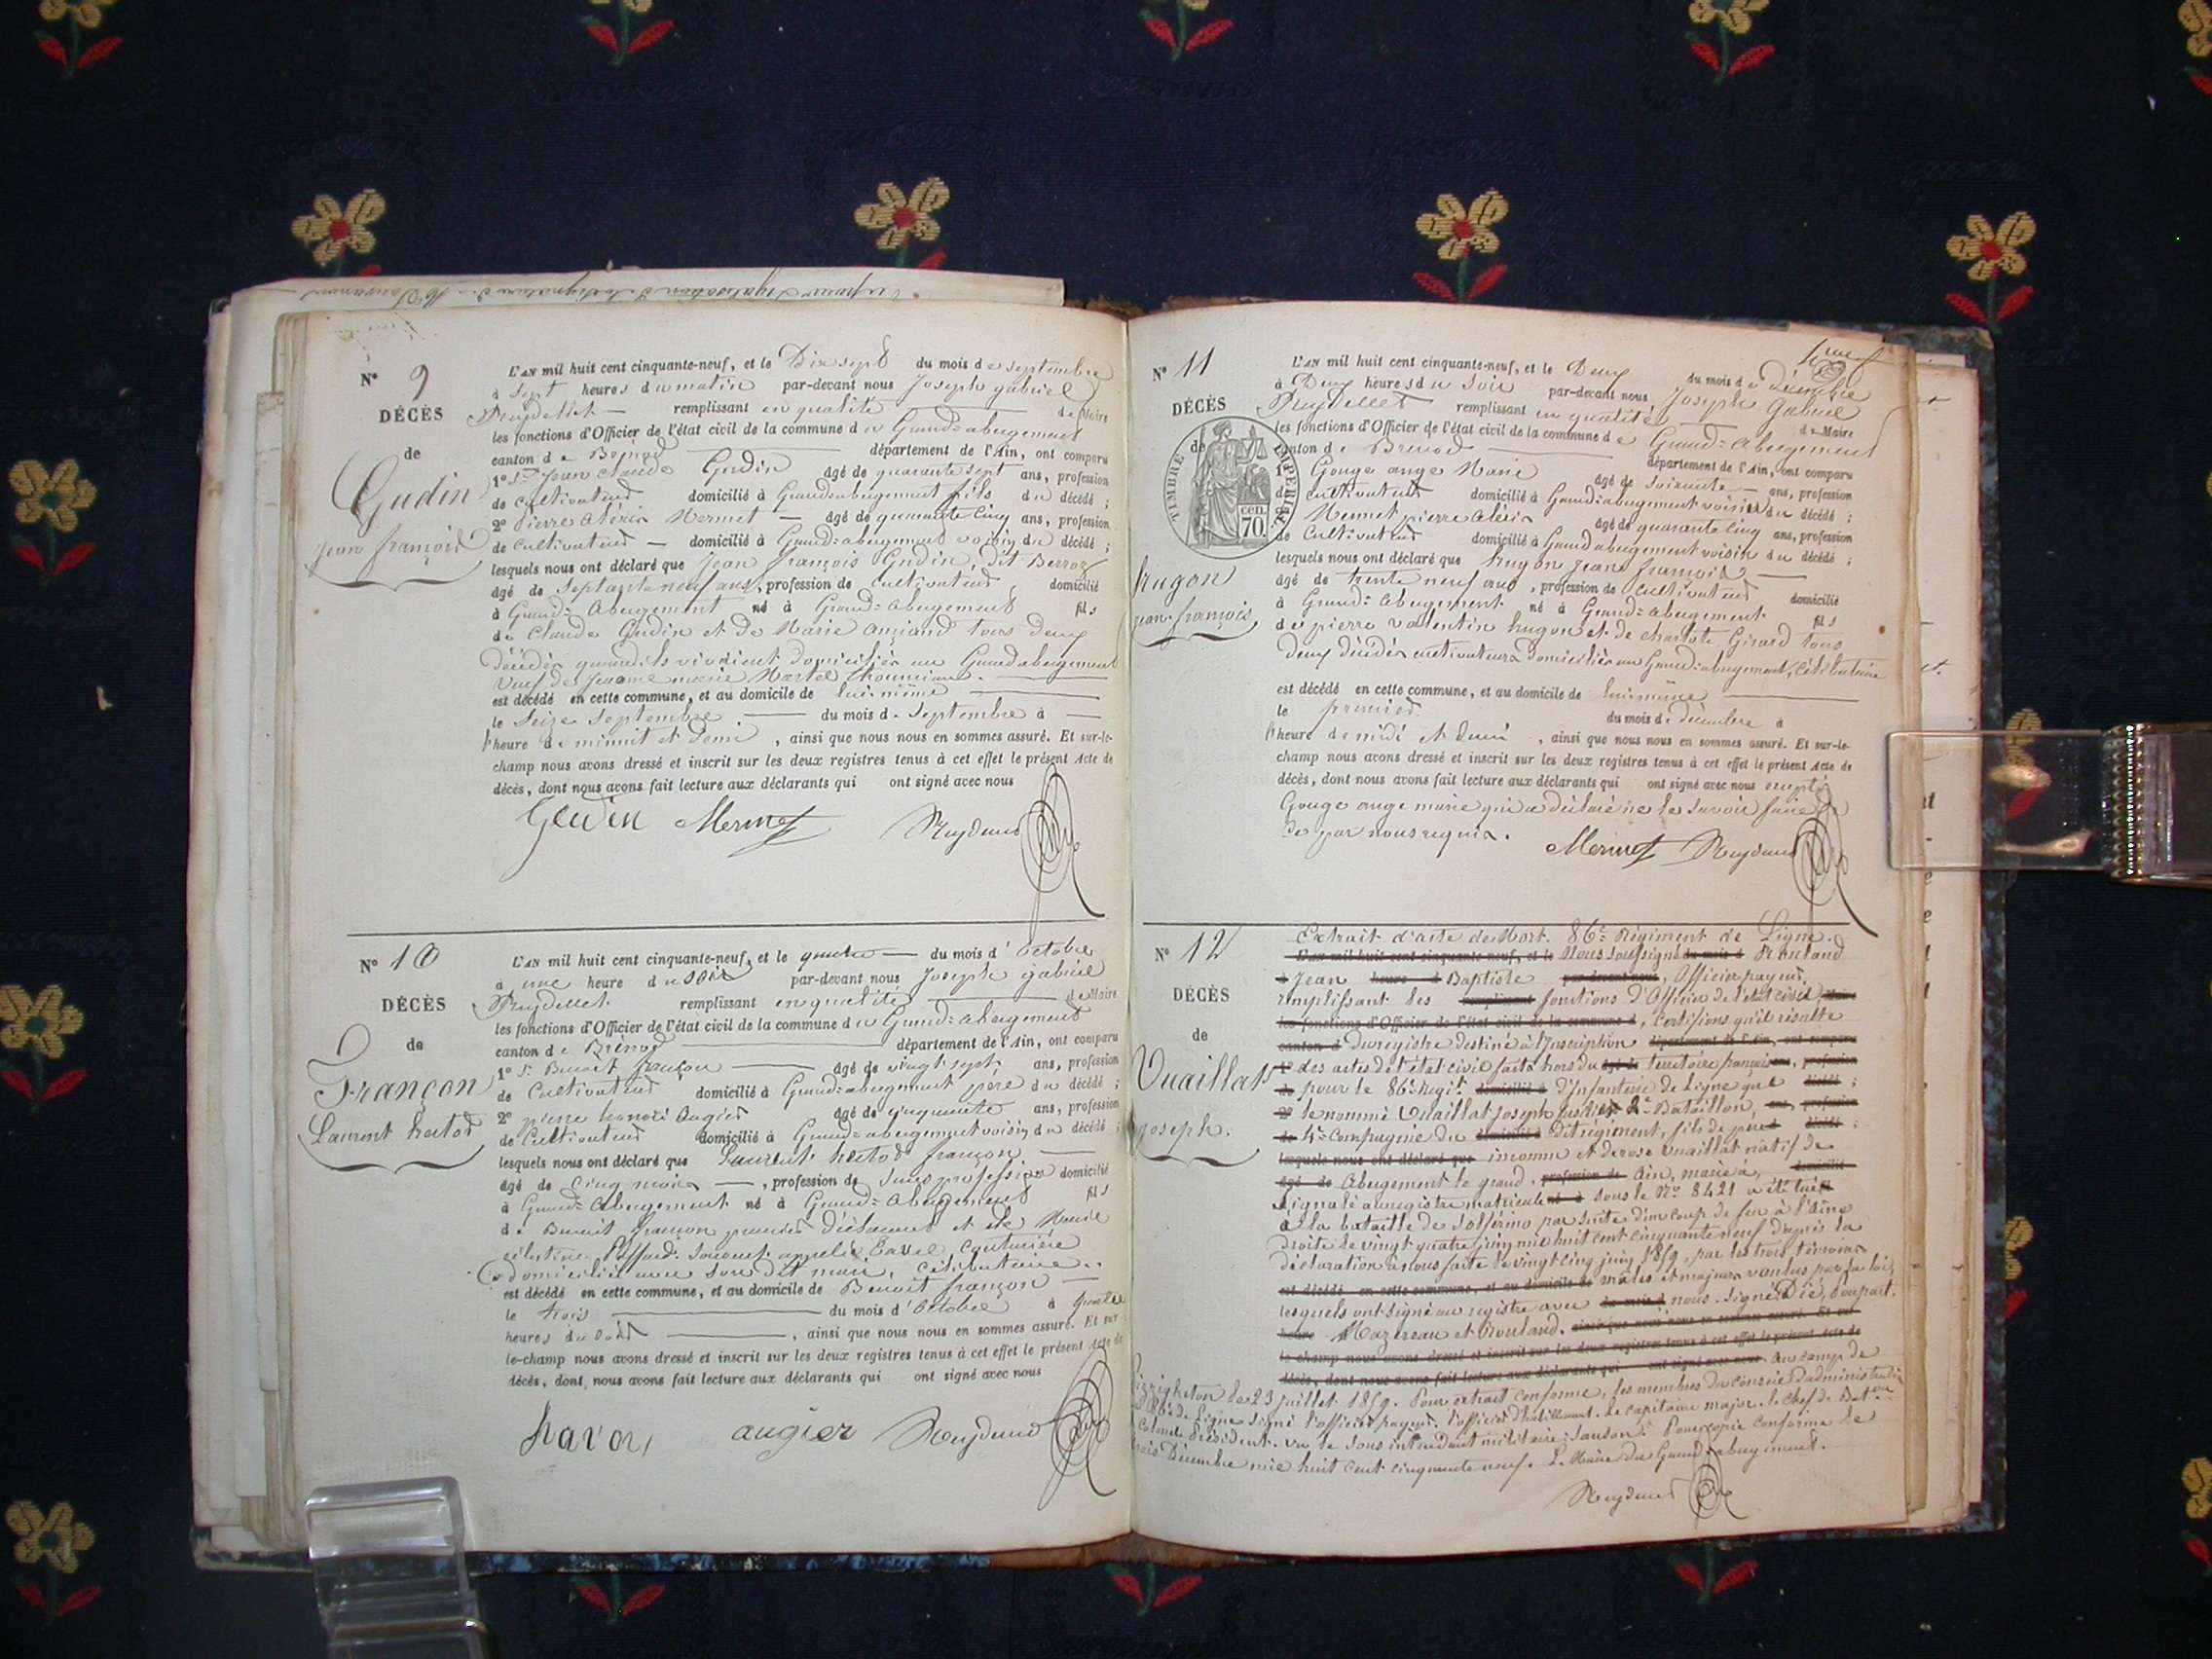 N° 9
DÉCÈS
de
Gudin
jean françois
L'AN mil huit cent cinquante-neuf, et le Dix sept du mois de septembre
à sept heures du matin par-devant nous Joseph gabriel
remplissant en qualité de Maire
les fonctions d'Officier de l'état civil de la commune du Grand=abergement
canton de Brénod département de l'Ain, ont comparu
1° Sr Jean Claude Gudin âgé de quarante sept ans, profession
de cultivateur domicilié à Grand=abergement fils du décédé ;
2° Pierre Aléxis Mermet âgé de quarante cinq ans, profession
de Cultivateur domicilié à Grand=abergement voisin du décédé ;
lesquels nous ont déclaré que Jean françois Gudin, dit
âgé de Septante neuf ans, profession de cultivateur domicilié
à Grand=Abergement né à Grand=abergement fils
de Claude Gudin et de Marie tous deux
décédés quand ils vivaient domiciliés au Grand abergement
veuf de marie Martel
est décédé en cette commune, et au domicile de lui-même
le Seize Septembre du mois de Septembre à
l'heure de minuit et demi, ainsi que nous nous en sommes assuré. Et sur-le-
champ nous avons dressé et inscrit sur les deux registres tenus à cet effet le présent Acte de
décès, dont nous avons fait lecture aux déclarants qui ont signé avec nous
Gudin Mermet
N° 10
DÉCÈS
de
Françon
Laurent hector
L'AN mil huit cent cinquante-neuf, et le quatre du mois d'Octobre
à une heure du soir par-devant nous Joseph gabriel
remplissant en qualité de Maire
les fonctions d'Officier de l'état civil de la commune du Grand=abergement
canton de Brénod département de l'Ain, ont comparu
1° Sr Benoit françon âgé de vingt sept ans, profession
de Cultivateur domicilié à Grand=abergement père du décédé ;
2° pierre honoré Augier âgé de cinquante ans, profession
de Cultivateur domicilié à Grand=abergement voisin du décédé ;
lesquels nous ont déclaré que Laurent hector françon
âgé de cinq mois, profession de Sans profession domicilié
à Grand=Abergement né à Grand=Abergement fils
de Benoit françon premier déclarant et de Marie
célestine appelée couturière
domiciliée avec son dit mari, célibataire.
est décédé en cette commune, et au domicile de Benoit françon
le trois du mois d'Octobre à quatre
heures du soir, ainsi que nous nous en sommes assuré. Et sur-
le-champ nous avons dressé et inscrit sur les deux registres tenus à cet effet le présent Acte de
décès, dont nous avons fait lecture aux déclarants qui ont signé avec nous
augier
N° 11
DÉCÈS
de
TIMBRE IMPÉRIAL
70 cen.
hugon
jean-françois
L'AN mil huit cent cinquante-neuf, et le Deux du mois de décembre
à Deux heures du Soir par-devant nous Joseph Gabriel
remplissant en qualité de Maire
les fonctions d'Officier de l'état civil de la commune de Grand=Abergement
canton de Brénod département de l'Ain, ont comparu
1° Gouge ange Marie âgé de soixante ans, profession
de cultivateur domicilié à Grand=abergement voisin du décédé ;
2° Mermet pierre aléxis âgé de quarante cinq ans, profession
de Cultivateur domicilié à Grand abergement voisin du décédé ;
lesquels nous ont déclaré que hugon jean françois
âgé de trente neuf ans, profession de cultivateur domicilié
à Grand=abergement né à Grand=abergement fils
de pierre valentin hugon et de charlote Girard tous
deux décédés cultivateurs domiciliés au Grand=abergement, célibataire
est décédé en cette commune, et au domicile de lui-même
le premier du mois de décembre à
l'heure de midi et demi, ainsi que nous nous en sommes assuré. Et sur-le-
champ nous avons dressé et inscrit sur les deux registres tenus à cet effet le présent Acte de
décès, dont nous avons fait lecture aux déclarants qui ont signé avec nous excepté
Gouge ange marie qui a déclaré ne le savoir faire
de par nous requis.
Mermet
N° 12
DÉCÈS
de
Vuaillat
joseph.
Extrait d'acte de Mort. 86e Régiment de Ligne.
Nous soussigné Rouland
Jean Baptiste, Officier payeur
remplissant les fonctions d'Officier de l'état civil
, Certifions qu'il résulte
du registre destiné à l'inscription
des actes de l'état civil faits hors du territoire français
pour le 86e Régt d'Infanterie de Ligne que
le nommé Vuaillat Joseph fusilier 2e Bataillon,
4e Compagnie du dit régiment, fils de père
inconnu et de rose vuaillat natif de
Abergement le grand, Ain, marié à,
Signalé au registre matricule sous le No 8421 a été tué
à la bataille de Solférino par suite d'un coup de feu à l'aine
droite le vingt quatre juin mil huit cent cinquante neuf d'après la
déclaration à nous faite le vingt cinq juin 1859, par les trois témoins
mâles et majeurs voulus par la loi,
lesquels ont signé au registre avec nous. Signé Dié, Poupart,
Mazereau et Rouland.
au camp de
le 23 juillet 1859. Pour extrait conforme, les membres du conseil d'administration
du 86e de Ligne signé l'officier payeur. l'officier d'habillement. le capitaine major. le chef de Baton
Colonel Président. vu le Sous intendant militaire : Sanson. Pour copie conforme le
trois Décembre mil huit cent cinquante neuf. Le Maire du Grand=abergement.